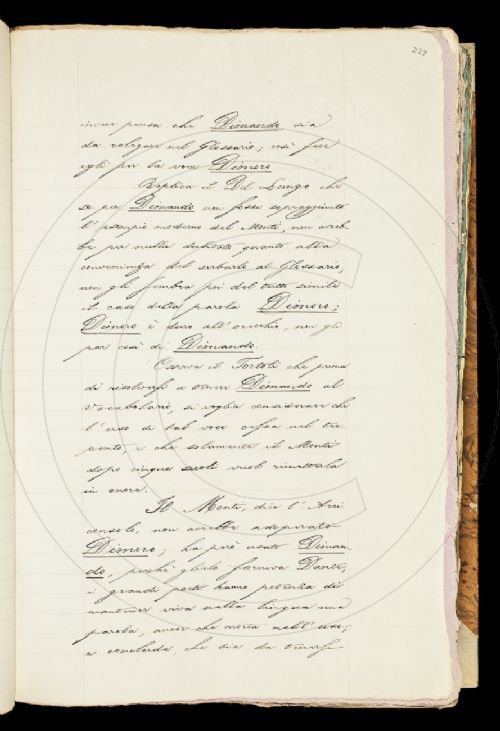 227
pensa che Dimando sia
da relegare nel Glossario; così
egli per la voce Dimoro
Replica il Del Lungo che
se per Dimando non fosse sopraggiunto
l'esempio moderno del Monti, non avreb-
be per nulla dubitato quanto alla
convenienza del serbarlo al Glossario,
non gli sembra poi del tutto simile
il caso della parola Dimoro;
Dimoro è duro all'orecchio, non gli
par così di Dimando.
Osserva il Tortoli che prima
di risolversi a tener Dimando al
Vocabolario, si voglia considerare che
l'uso di tal voce cessa nel tre-
cento, e che solamente il Monti
dopo cinque secoli vuol rimetterla
in onore.
Il Monti, dice l'Arci-
consolo, non avrebbe adoperato
Dimoro; ha però usato Diman-
do, perché glielo forniva Dante,
i grandi poeti hanno potenza di
mantener viva nella lingua una
parola, anco che morta nell'uso;
e conclude, che sia da